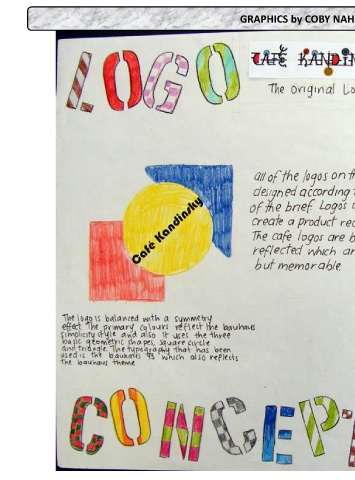 GRAPHICS by COBY NAH
LOGO
CAFÉ KANDIN
The original Lo
all of the logos on th
designed according
of the brief. Logos
create a product rec
The cafe logos are b
reflected which ar
but memorable
Café Kandinsky
The logo is balanced with a symmetry
effect The primary colours reflect the bauhaus
simplicity style and also it uses the three
basic geometric shapes, square circle
and triangle. The typography that has been
used is the bauhaus 93 which also reflects
the bauhaus theme
CONCEPT